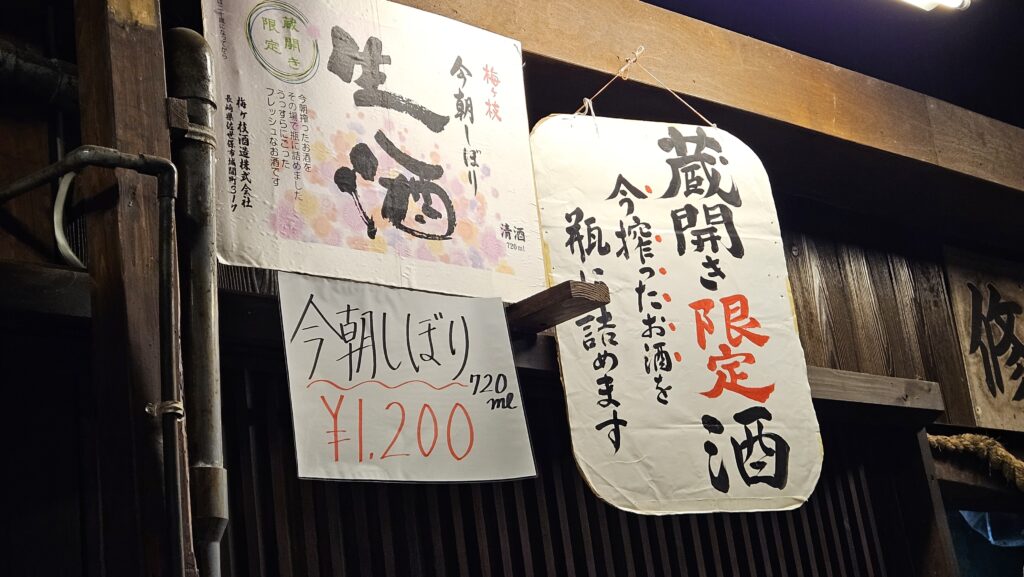 蔵開き
限定
梅ヶ枝
今朝しぼり
生酒
今朝搾ったお酒を
その場で瓶に詰めました
うっすらにごった
フレッシュなお酒です
梅ヶ枝酒造株式会社
長崎県佐世保市城間町317
清酒
720ml
今朝しぼり
720
ml
¥1,200
蔵開き限定酒
今搾ったお酒を
瓶に詰めます
修